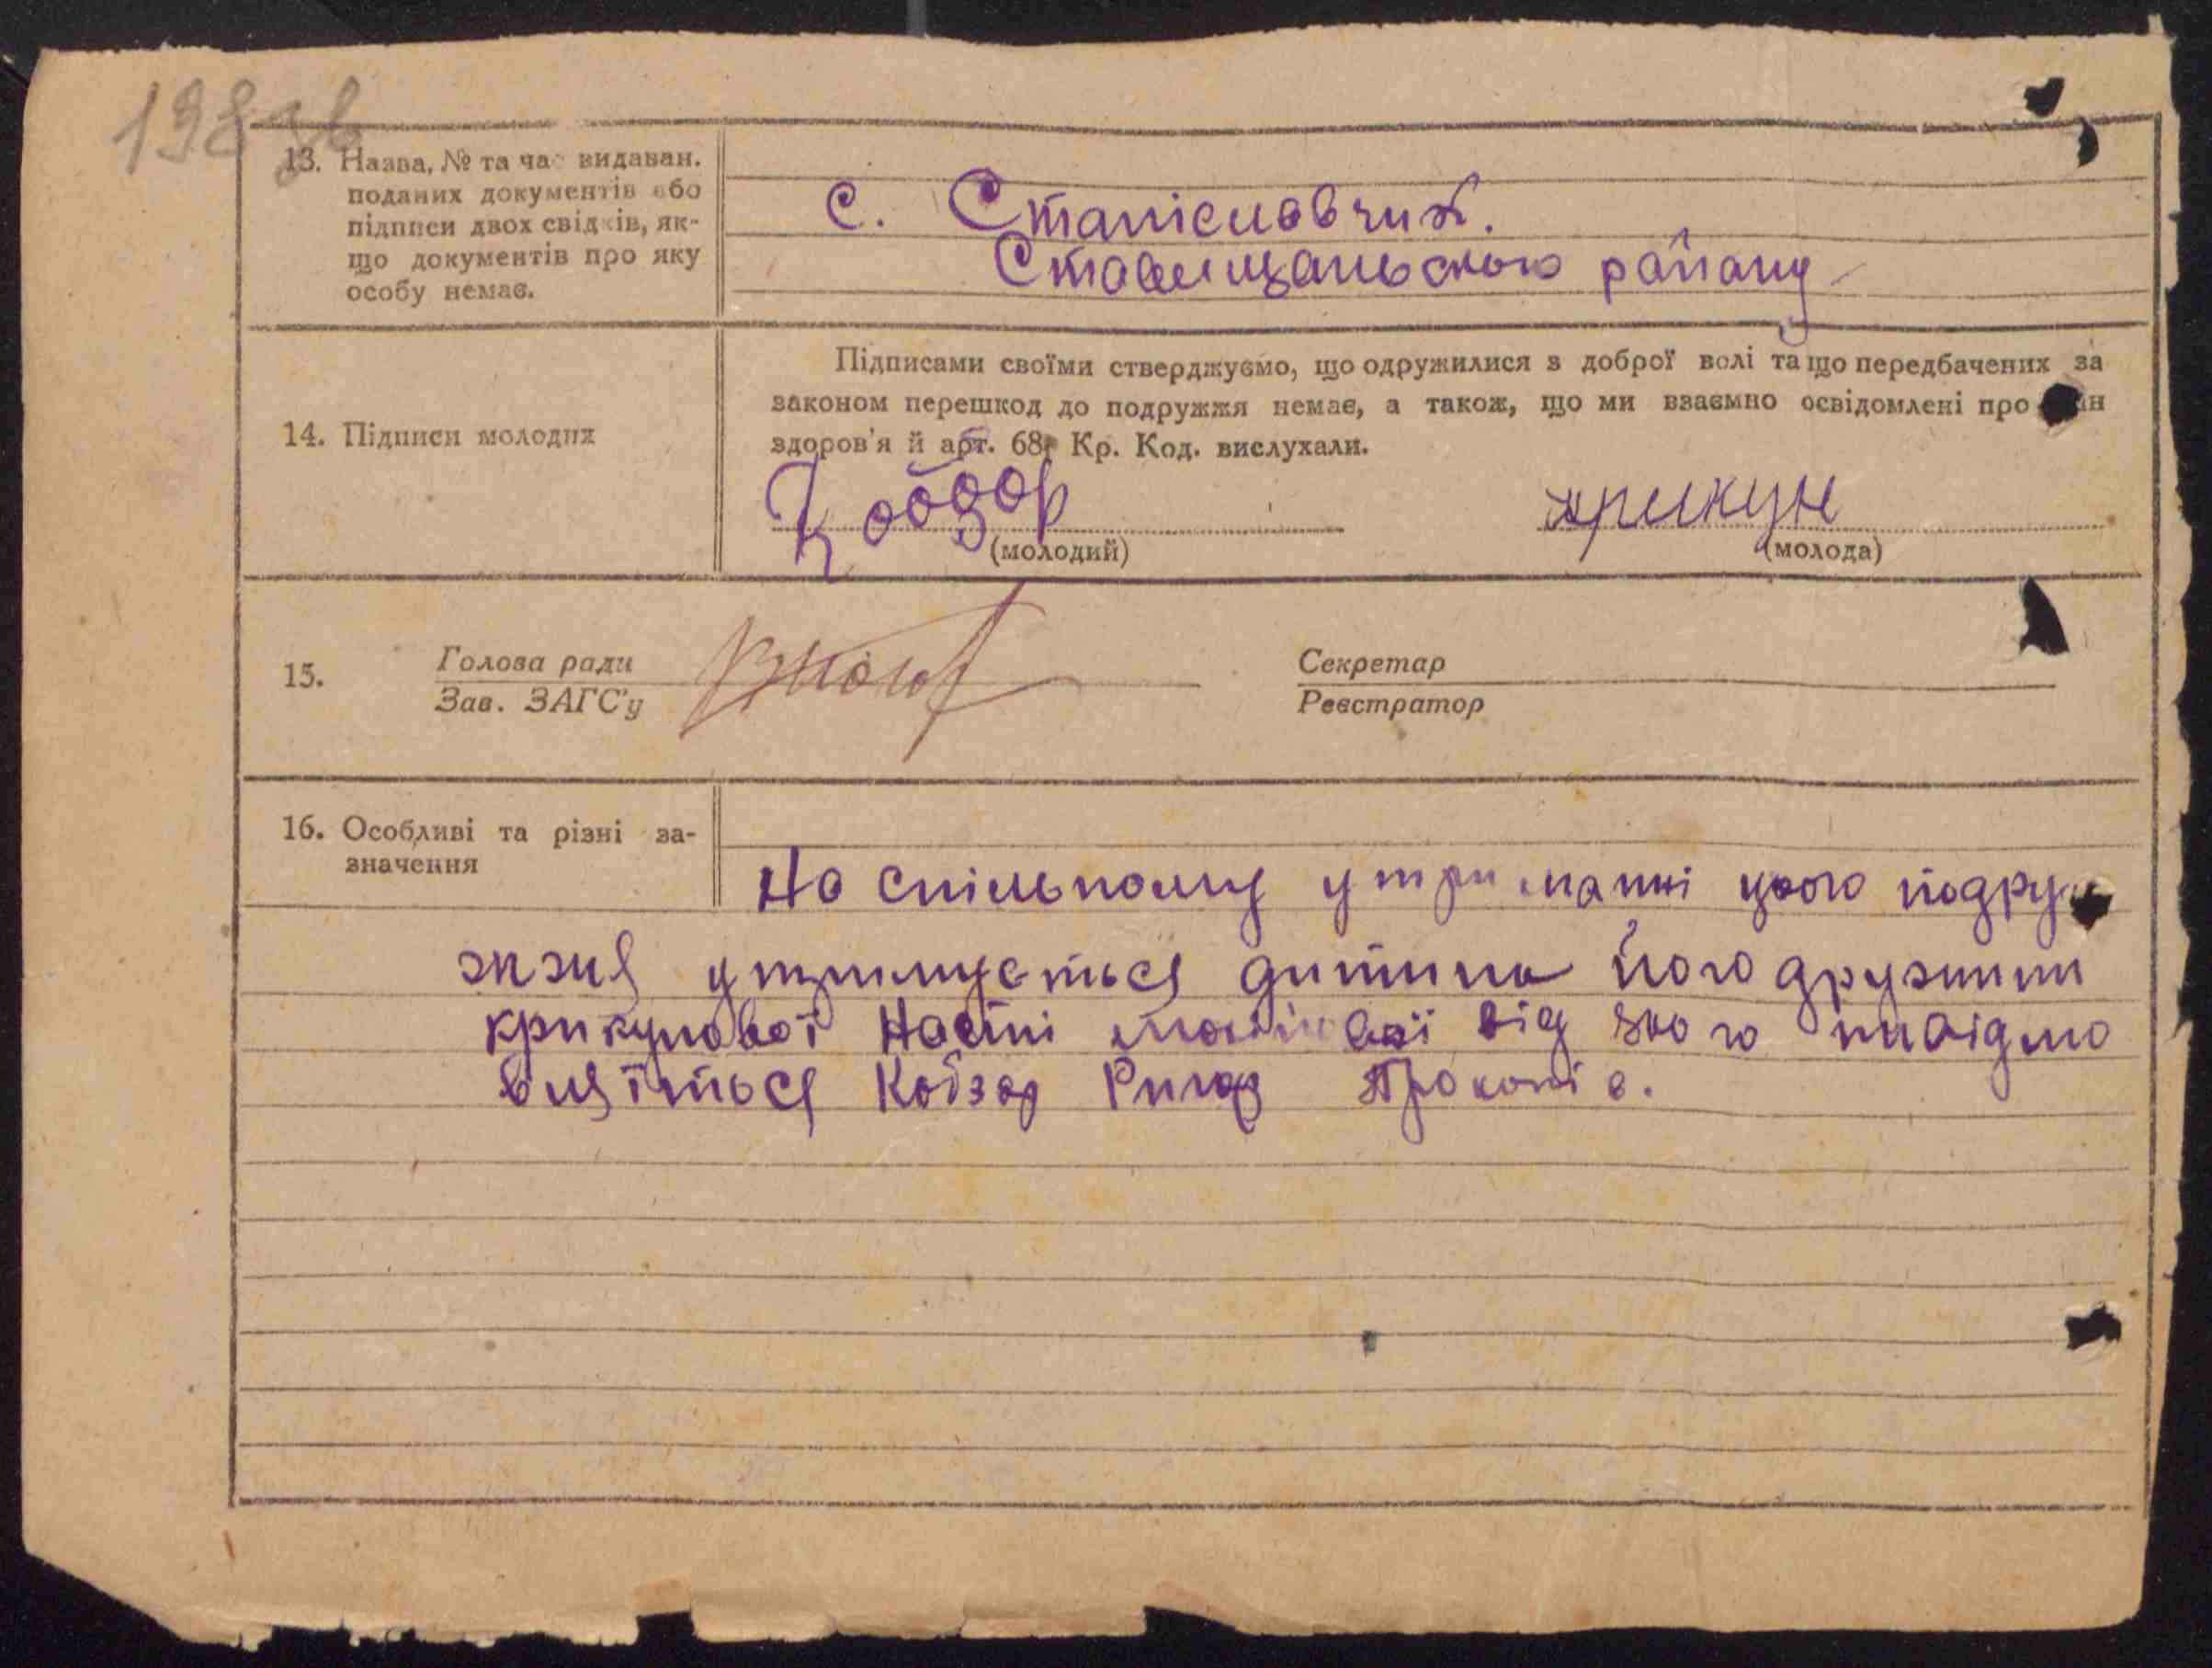 13. Назва, № та час видаван.
поданих документів або
підписи двох свідків, як-
що документів про яку
особу немає.
с. Станіславчик.
Ставищанського району
14. Підписи молодих
Підписами своїми стверджуємо, що одружилися з доброї волі та що передбачених за
законом перешкод до подружжя немає, а також, що ми взаємно освідомлені про
здоров'я й арт. 68 Кр. Код. вислухали.
Кобзар
крикун
(молодий)
(молода)
15.
Голова ради
Зав. ЗАГС'у
Секретар
Реєстратор
16. Особливі та різні за-
значення
На спільному утриманні цього подру
жжя утримується дитина його дружини
крикунової Насті від
Кобзар Прокопів.